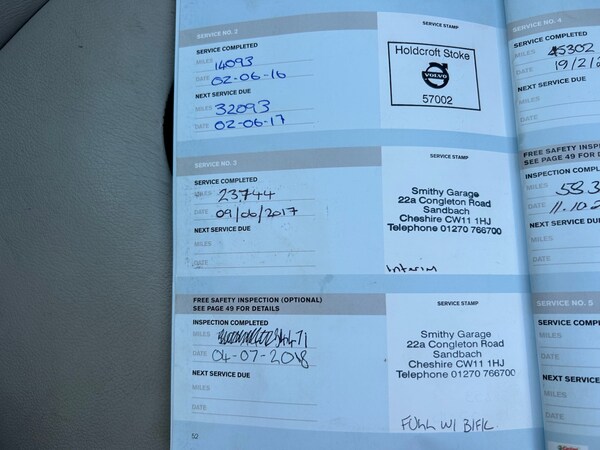 SERVICE NO. 2
SERVICE STAMP
SERVICE COMPLETED
MILES 14093
DATE 02-06-16
NEXT SERVICE DUE
MILES 32093
DATE 02-06-17
Holdcroft Stoke
VOLVO
57002
SERVICE NO. 3
SERVICE STAMP
SERVICE COMPLETED
MILES 23,744
DATE 09/06/2017
NEXT SERVICE DUE
MILES
DATE
Smithy Garage
22a Congleton Road
Sandbach
Cheshire CW11 1HJ
Telephone 01270 766700
Interim
FREE SAFETY INSPECTION (OPTIONAL)
SEE PAGE 49 FOR DETAILS
SERVICE STAMP
INSPECTION COMPLETED
MILES
DATE 04-07-2018
NEXT SERVICE DUE
MILES
DATE
Smithy Garage
22a Congleton Road
Sandbach
Cheshire CW11 1HJ
Telephone 01270 766700
FULL W/ B/F/L
52
SERVICE NO. 4
SERVICE COMPLETED
MILES 45302
DATE 19/2/2
NEXT SERVICE DUE
MILES
DATE
FREE SAFETY INSPE
SEE PAGE 49 FOR D
INSPECTION COMPL
MILES 583
DATE 11.10.2
NEXT SERVICE DUE
MILES
DATE
SERVICE NO. 5
SERVICE COMPL
MILES
DATE
NEXT SERVIC
MILES
DATE
Castrol